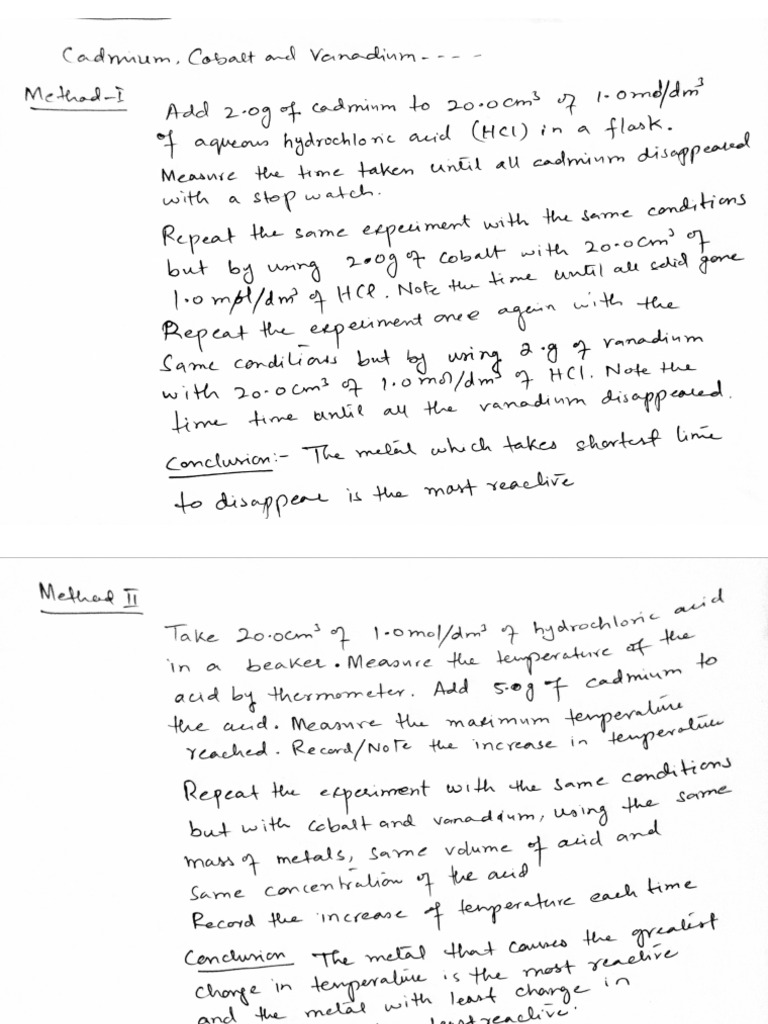 Cadmium, Cobalt and Vanadium----
Method-I
Add 2.0g of cadmium to 20.0cm³ of 1.0mol/dm³
of aqueous hydrochloric acid (HCl) in a flask.
Measure the time taken until all cadmium disappeared
with a stop watch.
Repeat the same experiment with the same conditions
but by using 2.0g of cobalt with 20.0cm³ of
1.0 mol/dm³ of HCl. Note the time until all solid gone
Repeat the experiment once again with the
same conditions but by using 2.g of vanadium
with 20.0cm³ of 1.0mol/dm³ of HCl. Note the
time time until all the vanadium disappeared.
Conclusion:- The metal which takes shortest time
to disappear is the most reactive
Method II
Take 20.0cm³ of 1.0mol/dm³ of hydrochloric acid
in a beaker. Measure the temperature of the
acid by thermometer. Add 5.0g of cadmium to
the acid. Measure the maximum temperature
reached. Record/Note the increase in temperature
Repeat the experiment with the same conditions
but with cobalt and vanadium, using the same
mass of metals, same volume of acid and
same concentration of the acid
Record the increase of temperature each time
Conclusion The metal that causes the greatest
change in temperature is the most reactive
and the metal with least change in
least reactive.